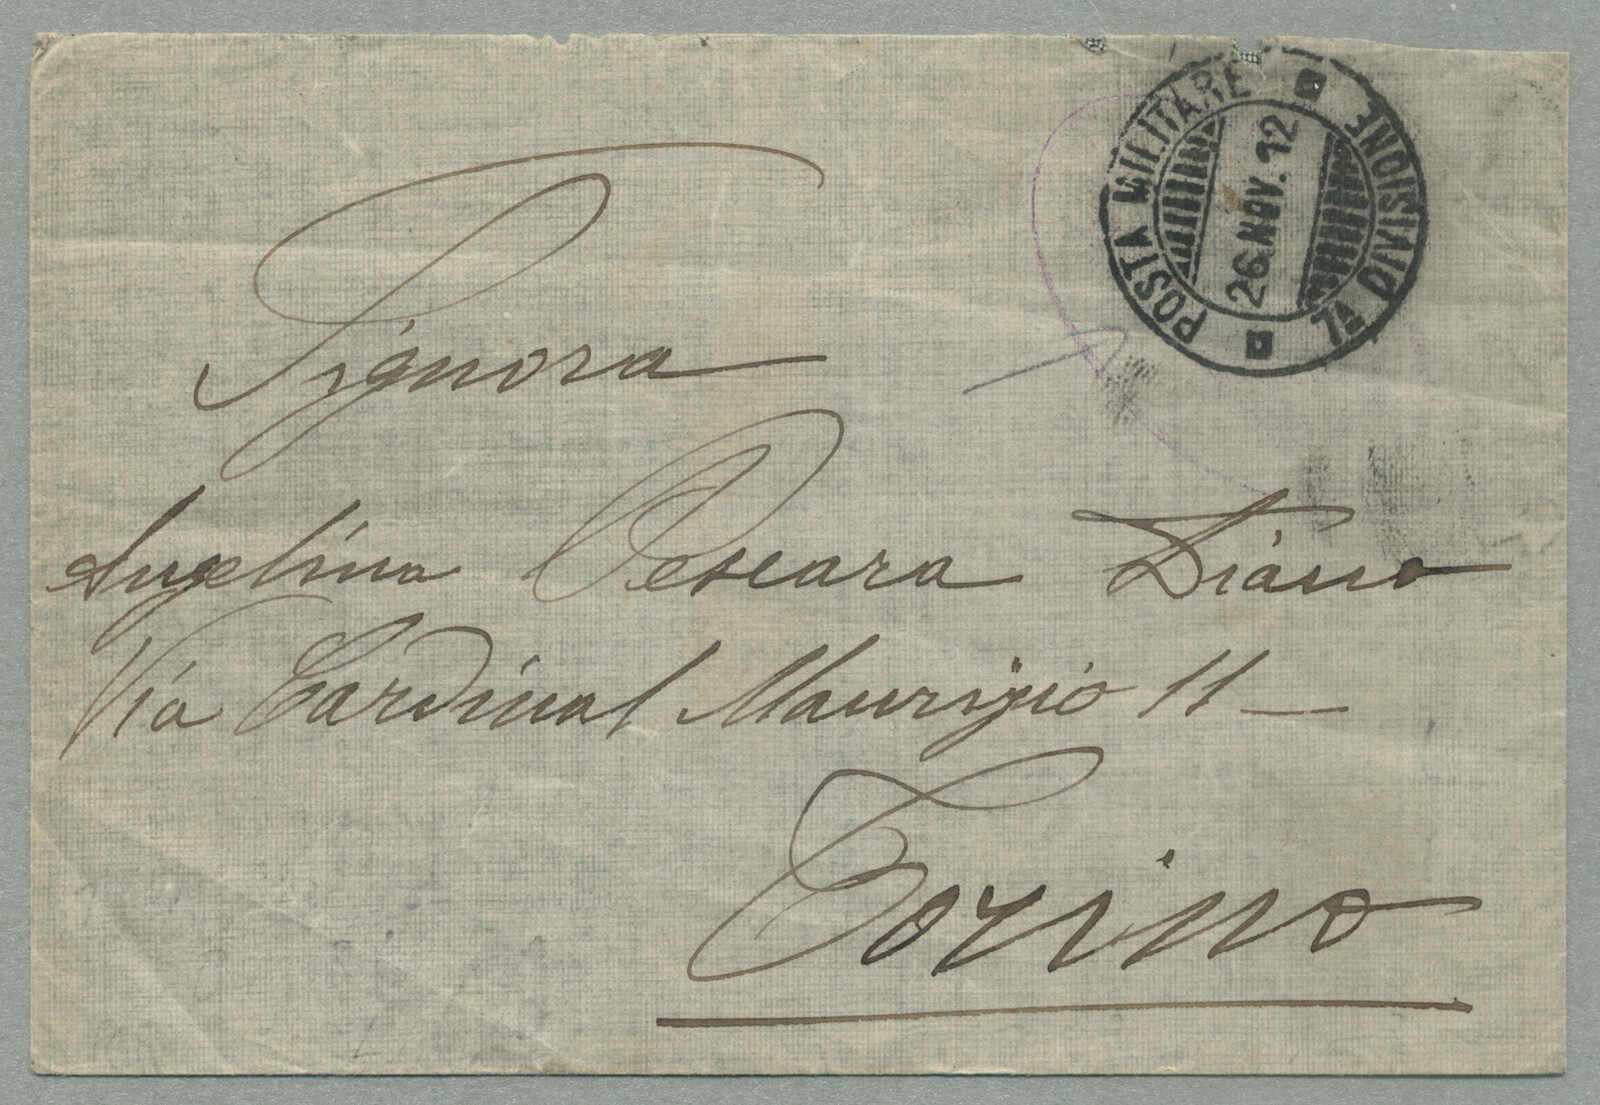 POSTA MILITARE
7ª DIVISIONE
26.NOV.12
Signora
Angelina Pescara Diano
Via Cardinal Maurizio 11 —
Torino